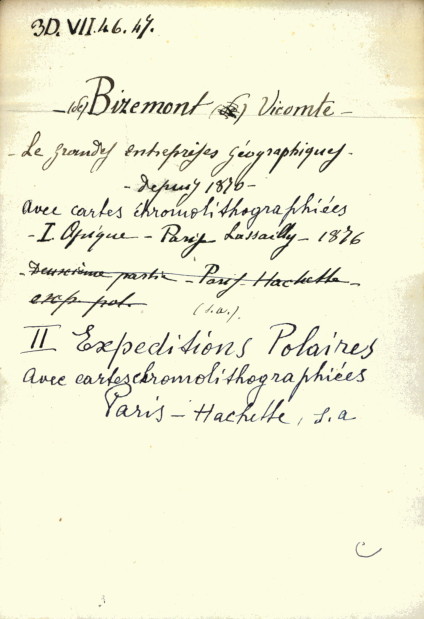 3D. VII. 46. 47.
- (de) Bizemont (de) Vicomte -
- Le grandes entreprises géographiques -
- depuis 1870 -
avec cartes chromolithographiées
- I. Afrique - Paris Lassailly - 1876
- Deuxième partie - Paris Hachette -
(s.a.).
II Expeditions Polaires
avec cartes chromolithographiées
Paris - Hachette, s.a
C